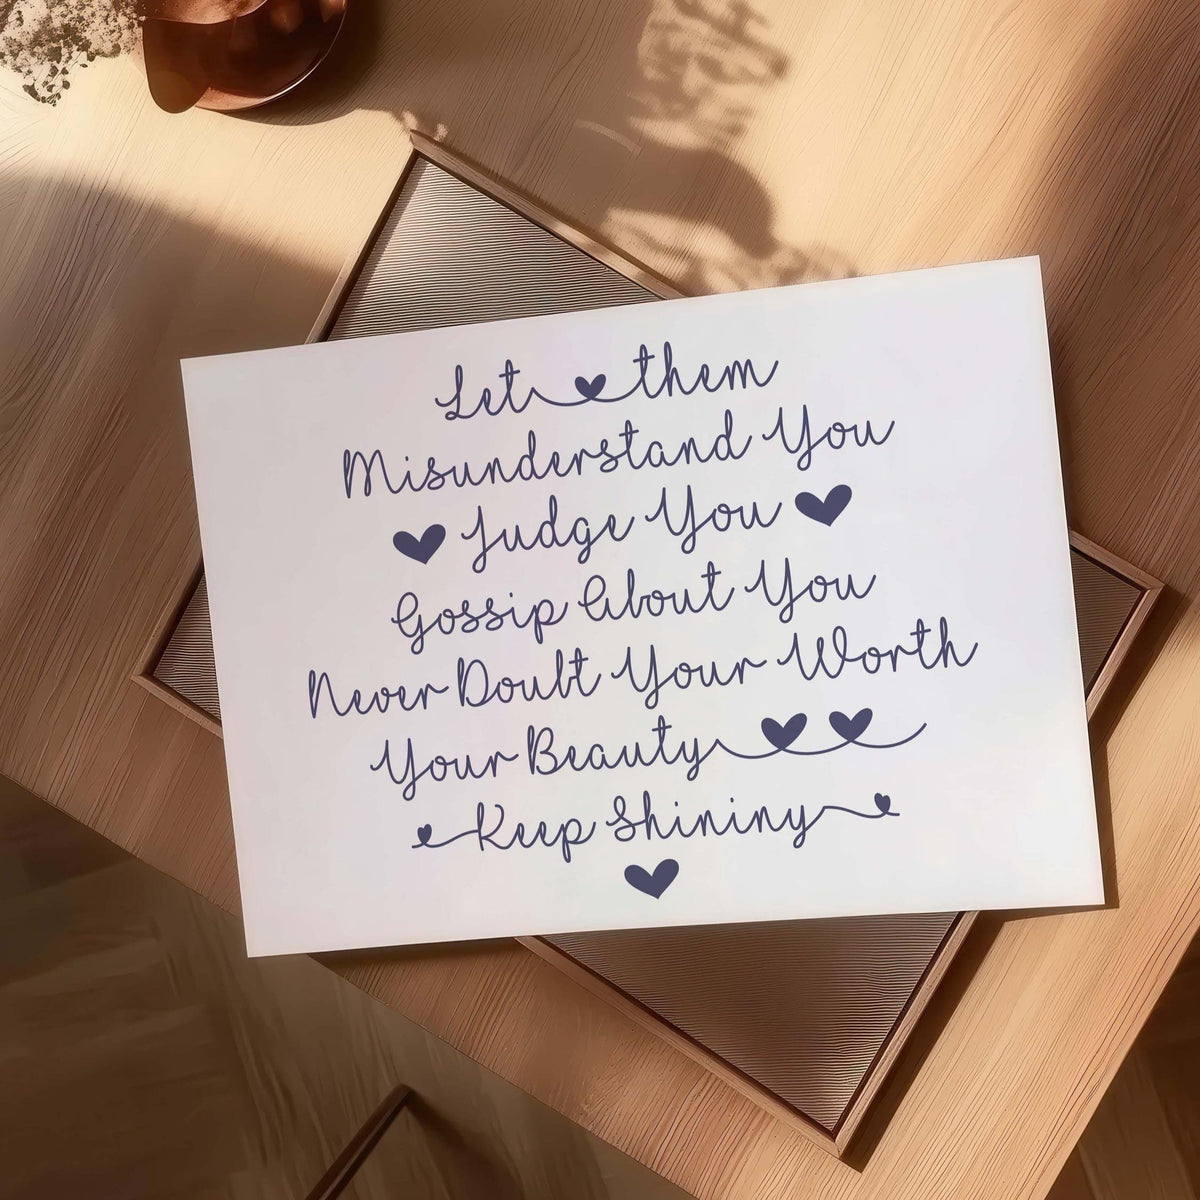 Let them
Misunderstand You
Judge You
Gossip About You
Never Doubt Your Worth
Your Beauty
Keep Shininy